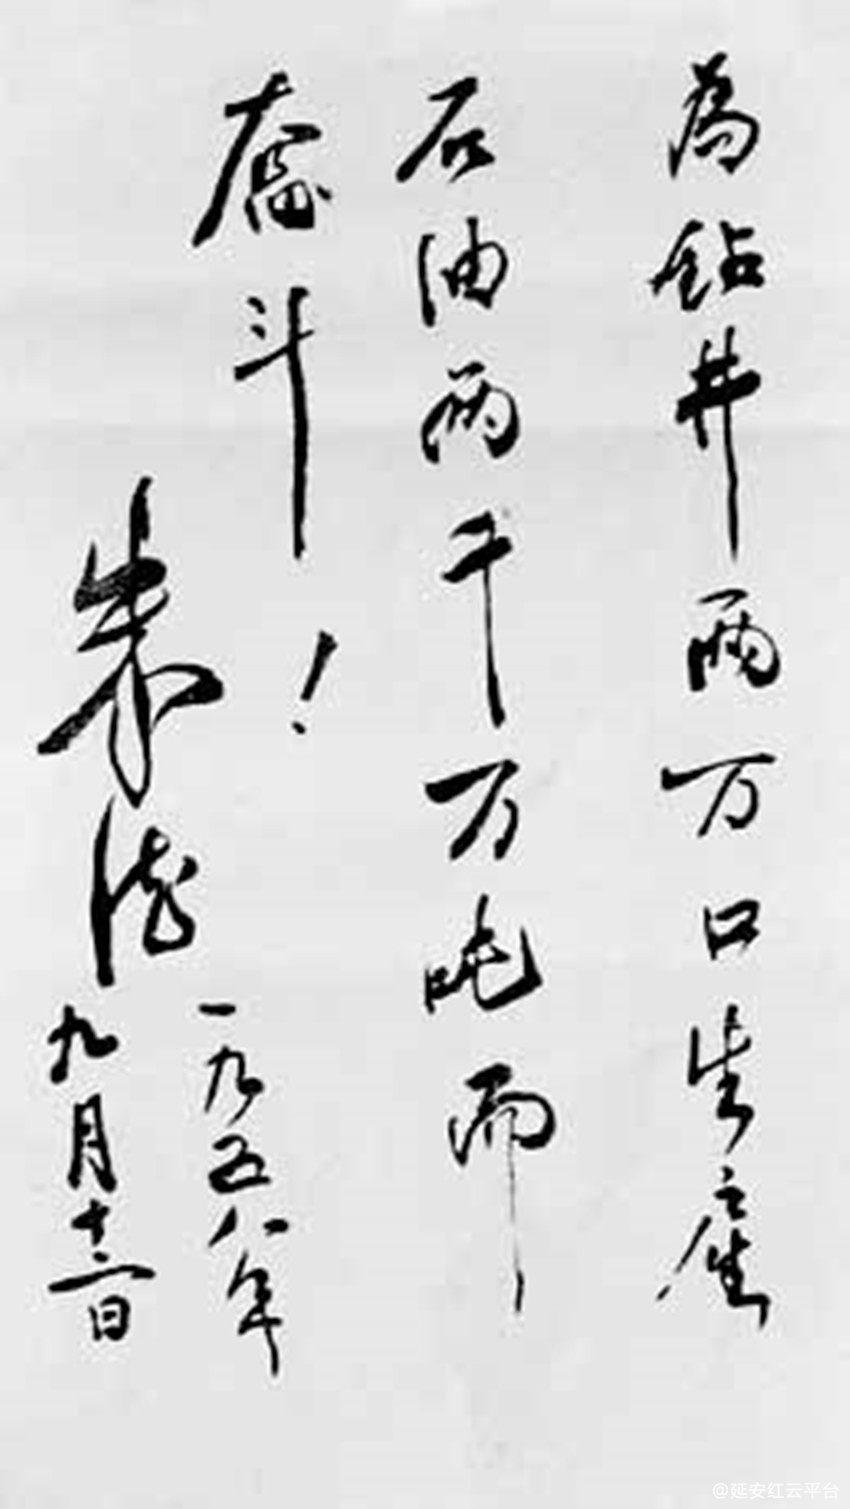 為钻井两万口生産
石油两千万吨而
奮斗！
朱德
一九五八年
九月十二日
@延安红云平台